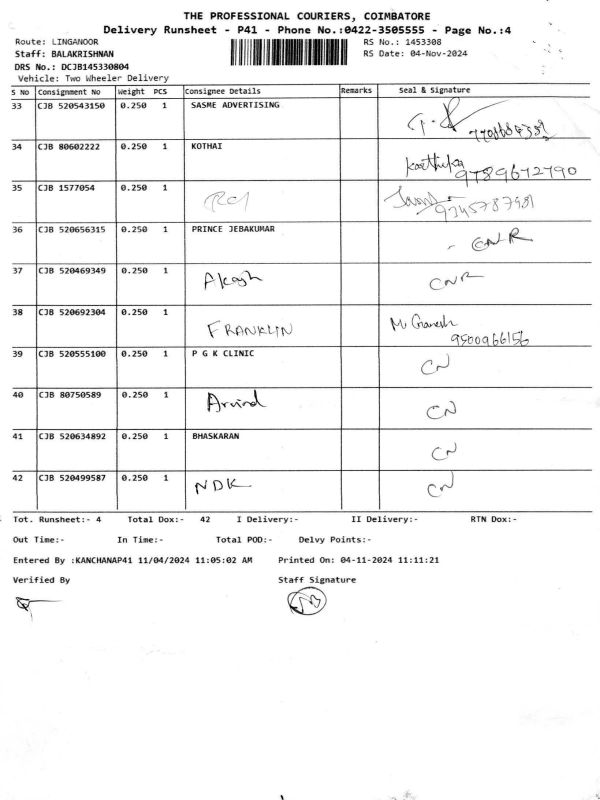 THE PROFESSIONAL COURIERS, COIMBATORE
Delivery Runsheet - P41 - Phone No.:0422-3505555 - Page No.:4
Route: LINGANOOR RS No.: 1453308
Staff: BALAKRISHNAN RS Date: 04-Nov-2024
DRS No.: DCJB145330804
Vehicle: Two Wheeler Delivery
S No Consignment No Weight PCS Consignee Details Remarks Seal & Signature
33 CJB 520543150 0.250 1 SASME ADVERTISING
34 CJB 80602222 0.250 1 KOTHAI Karthika
9789672790
35 CJB 1577054 0.250 1
9345787981
36 CJB 520656315 0.250 1 PRINCE JEBAKUMAR CNR
37 CJB 520469349 0.250 1 Akash CNR
38 CJB 520692304 0.250 1 FRANKLIN M Ganesh
9500966156
39 CJB 520555100 0.250 1 P G K CLINIC CN
40 CJB 80750589 0.250 1 Arvind CN
41 CJB 520634892 0.250 1 BHASKARAN CN
42 CJB 520499587 0.250 1 NDK CN
Tot. Runsheet:- 4 Total Dox:- 42 I Delivery:- II Delivery:- RTN Dox:-
Out Time:- In Time:- Total POD:- Delvy Points:-
Entered By :KANCHANAP41 11/04/2024 11:05:02 AM Printed On: 04-11-2024 11:11:21
Verified By Staff Signature